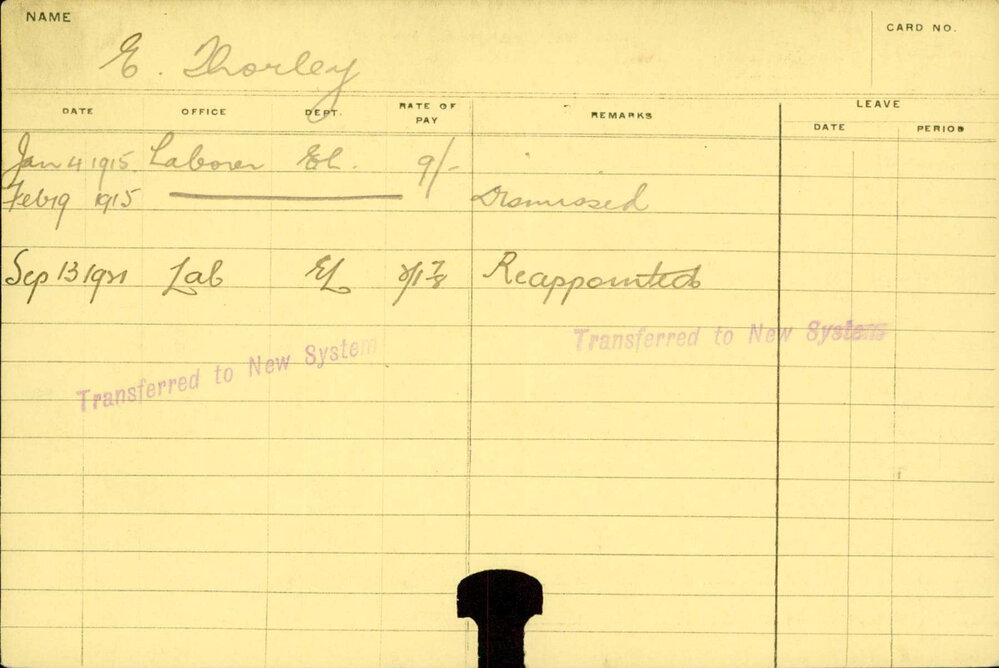 NAME
CARD NO.
E. Thorley
DATE OFFICE DEPT. RATE OF PAY REMARKS LEAVE
DATE PERIOD
Jan 4 1915 Laborer El. 9/-
Feb 19 1915 Dismissed
Sep 13 1921 Lab EL Reappointed
Transferred to New System
Transferred to New System